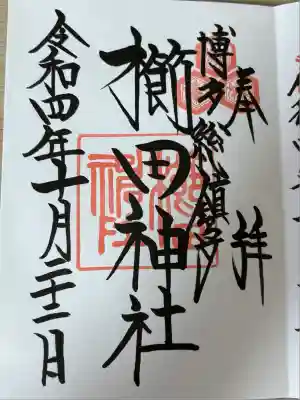 奉拝
博多総鎮守
櫛田神社
令和四年十一月二十二日